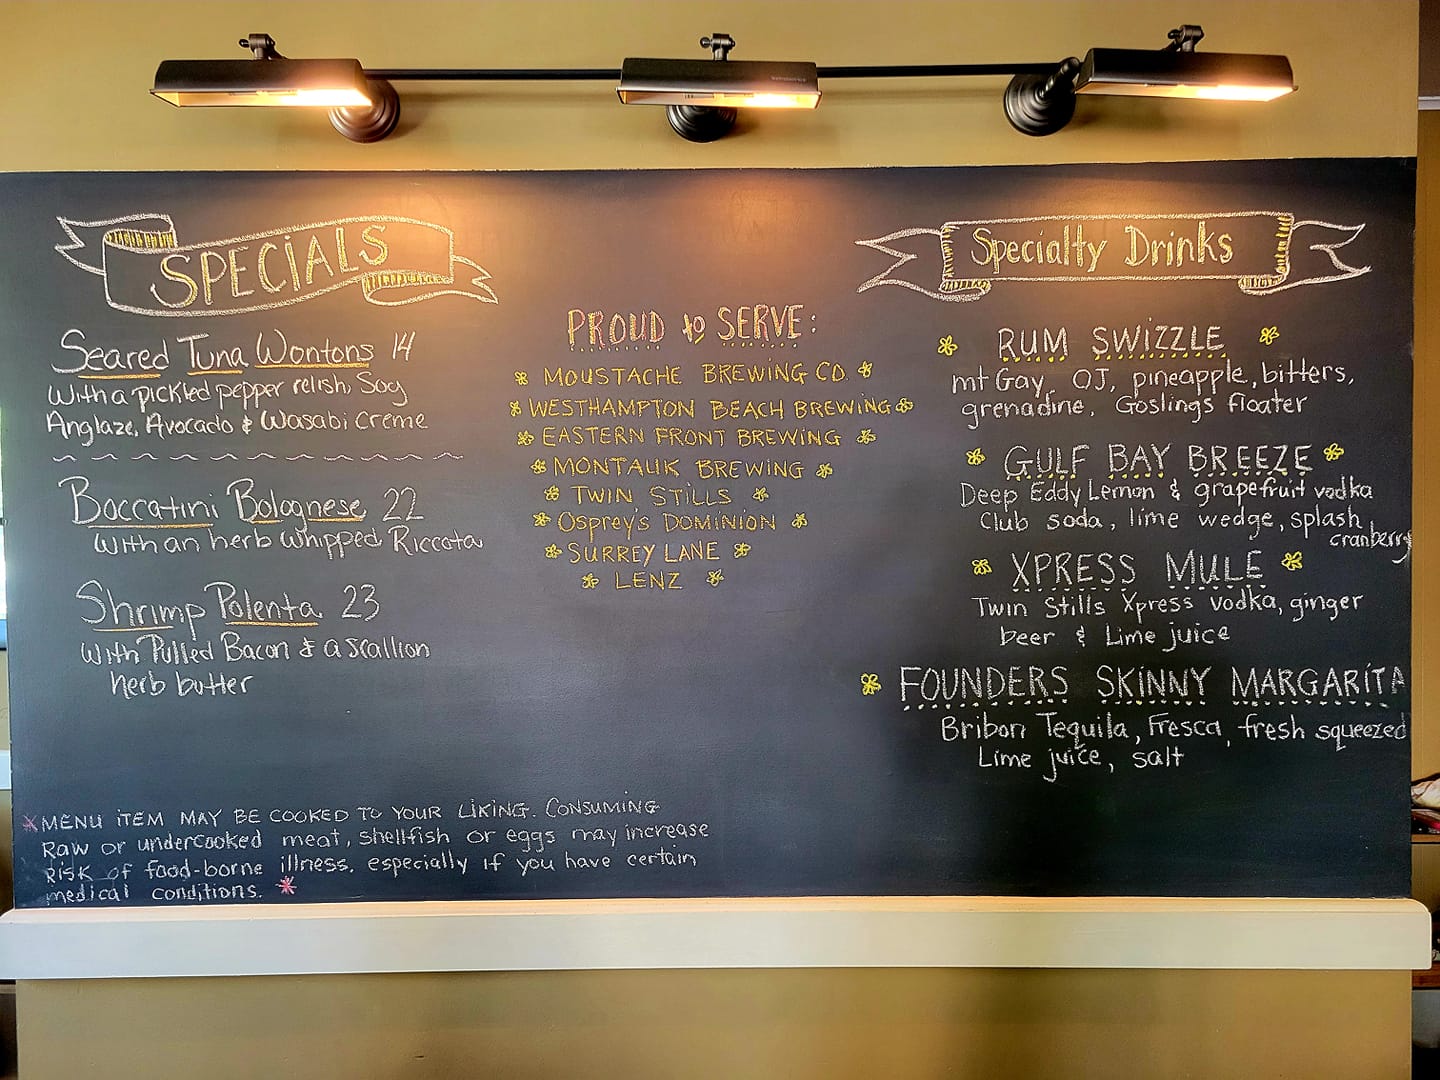 SPECIALS
Seared Tuna Wontons 14
with a pickled pepper relish, Soy
Anglaze, Avocado & Wasabi Creme
Boccatini Bolognese 22
with an herb whipped Riccota
Shrimp Polenta 23
with Pulled Bacon & a scallion
herb butter
*MENU ITEM MAY BE COOKED TO YOUR LIKING. CONSUMING
RAW or undercooked meat, shellfish or eggs may increase
RISK OF food-borne illness, especially if you have certain
medical conditions. *
PROUD to SERVE:
MOUSTACHE BREWING CO.
WESTHAMPTON BEACH BREWING
EASTERN FRONT BREWING
MONTAUK BREWING
TWIN STILLS
Osprey's DOMINION
SURREY LANE
LENZ
Specialty Drinks
RUM SWIZZLE
mt Gay, OJ, pineapple, bitters,
grenadine, Goslings floater
GULF BAY BREEZE
Deep Eddy Lemon & grapefruit vodka
Club soda, lime wedge, splash
cranberry
XPRESS MULE
Twin Stills Xpress vodka, ginger
beer & Lime juice
FOUNDERS SKINNY MARGARITA
Bribon Tequila, Fresca, fresh squeezed
Lime juice, salt